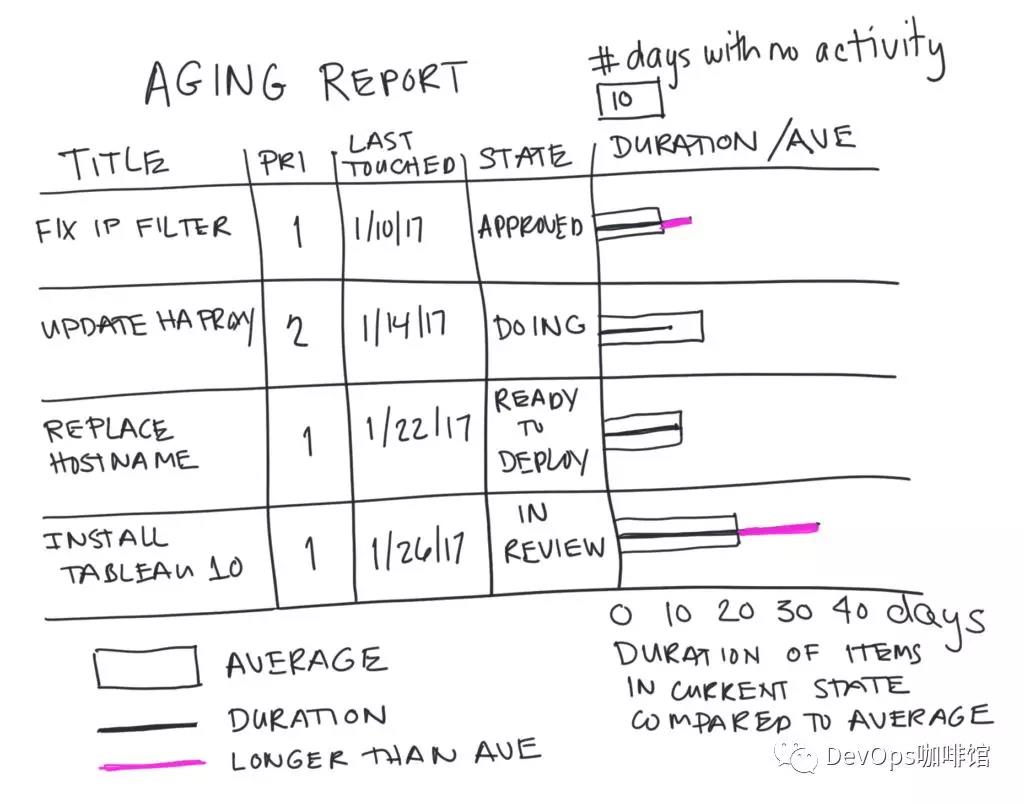 AGING REPORT
# days with no activity
10
TITLE PRI LAST TOUCHED STATE DURATION/AVE
FIX IP FILTER 1 1/10/17 APPROVED
UPDATE HAPROXY 2 1/14/17 DOING
REPLACE HOSTNAME 1 1/22/17 READY TO DEPLOY
INSTALL TABLEAU 10 1 1/26/17 IN REVIEW
0 10 20 30 40 days
DURATION OF ITEMS
IN CURRENT STATE
COMPARED TO AVERAGE
AVERAGE
DURATION
LONGER THAN AVE
DevOps咖啡馆